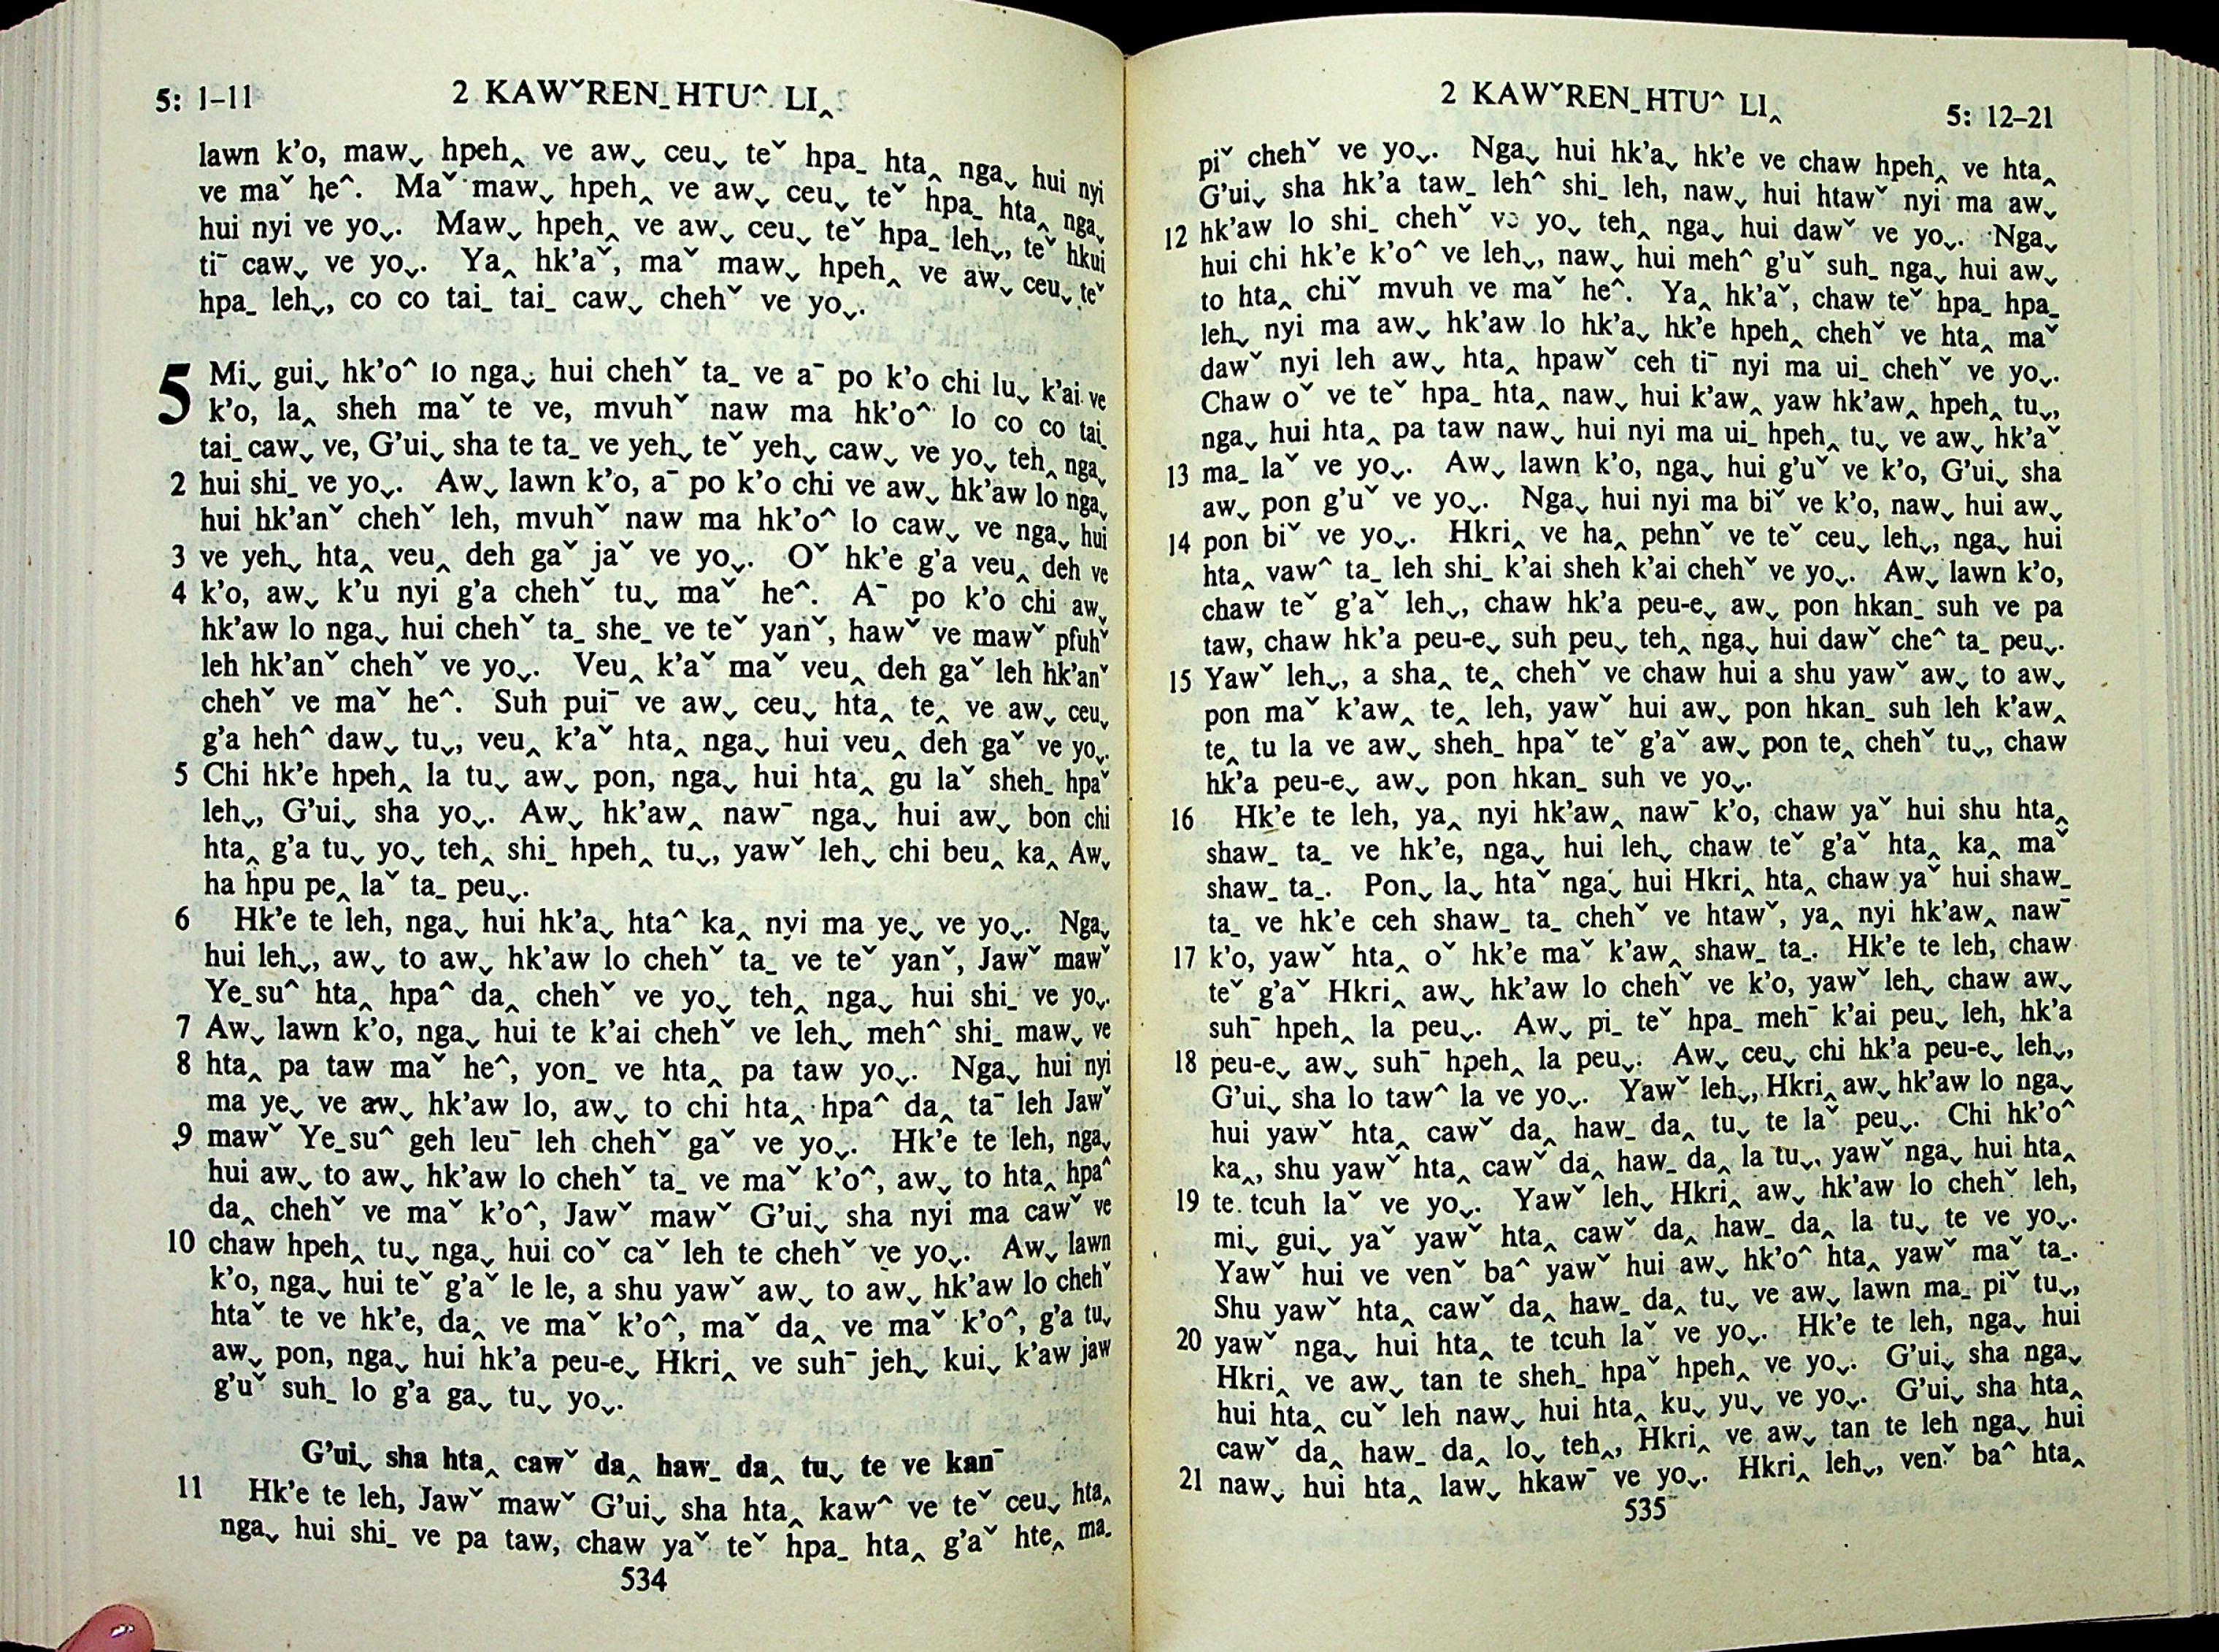 5: 1–11
2 KAWˇREN_HTU^ LI‸
lawn k’o, maw˯ hpeh‸ ve aw˯ ceu˯ teˇ hpa_ hta‸ nga˯ hui nyi
ve maˇ he^. Maˇ maw˯ hpeh‸ ve aw˯ ceu˯ teˇ hpa_ hta‸ nga˯
hui nyi ve yo˯. Maw˯ hpeh‸ ve aw˯ ceu˯ teˇ hpa_ leh˯, teˇ hkui
tiˉ caw˯ ve yo˯. Ya‸ hk’aˇ, maˇ maw˯ hpeh‸ ve aw˯ ceu˯ teˇ
hpa_ leh˯, co co tai_ tai_ caw˯ chehˇ ve yo˯.
5 Mi˯ gui˯ hk’o^ lo nga˯ hui chehˇ ta_ ve aˉ po k’o chi lu˯ k’ai ve
k’o, la‸ sheh maˇ te ve, mvuhˇ naw ma hk’o^ lo co co tai_
tai_ caw˯ ve, G’ui˯ sha te ta_ ve yeh˯ teˇ yeh˯ caw˯ ve yo˯ teh‸ nga˯
2 hui shi_ ve yo˯. Aw˯ lawn k’o, aˉ po k’o chi ve aw˯ hk’aw lo nga˯
hui hk’anˇ chehˇ leh, mvuhˇ naw ma hk’o^ lo caw˯ ve nga˯ hui
3 ve yeh˯ hta‸ veu‸ deh gaˇ jaˇ ve yo˯. Oˇ hk’e g’a veu‸ deh ve
4 k’o, aw˯ k’u nyi g’a chehˇ tu˯ maˇ he^. Aˉ po k’o chi aw˯
hk’aw lo nga˯ hui chehˇ ta_ she_ ve teˇ yanˇ, hawˇ ve mawˇ pfuhˇ
leh hk’anˇ chehˇ ve yo˯. Veu‸ k’aˇ maˇ veu‸ deh gaˇ leh hk’anˇ
chehˇ ve maˇ he^. Suh puiˉ ve aw˯ ceu˯ hta‸ te‸ ve aw˯ ceu˯
g’a heh^ daw˯ tu˯, veu‸ k’aˇ hta‸ nga˯ hui veu‸ deh gaˇ ve yo˯.
5 Chi hk’e hpeh‸ la tu˯ aw˯ pon, nga˯ hui hta‸ gu laˇ sheh_ hpaˇ
leh˯, G’ui˯ sha yo˯. Aw˯ hk’aw‸ nawˉ nga˯ hui aw˯ bon chi
hta‸ g’a tu˯ yo˯ teh‸ shi_ hpeh‸ tu˯, yawˇ leh˯ chi beu‸ ka‸ Aw˯
ha hpu pe‸ laˇ ta_ peu˯.
6 Hk’e te leh, nga˯ hui hk’a˯ hta^ ka‸ nyi ma ye˯ ve yo˯. Nga˯
hui leh˯, aw˯ to aw˯ hk’aw lo chehˇ ta_ ve teˇ yanˇ, Jawˇ mawˇ
Ye_su^ hta‸ hpa^ da‸ chehˇ ve yo˯ teh‸ nga˯ hui shi_ ve yo˯.
7 Aw˯ lawn k’o, nga˯ hui te k’ai chehˇ ve leh˯ meh^ shi_ maw˯ ve
8 hta‸ pa taw maˇ he^, yon_ ve hta‸ pa taw yo˯. Nga˯ hui nyi
ma ye˯ ve aw˯ hk’aw lo, aw˯ to chi hta‸ hpa^ da‸ taˉ leh Jawˇ
9 mawˇ Ye_su^ geh leuˉ leh chehˇ gaˇ ve yo˯. Hk’e te leh, nga˯
hui aw˯ to aw˯ hk’aw lo chehˇ ta_ ve maˇ k’o^, aw˯ to hta‸ hpa^
da‸ chehˇ ve maˇ k’o^, Jawˇ mawˇ G’ui˯ sha nyi ma cawˇ ve
10 chaw hpeh‸ tu˯ nga˯ hui coˇ caˇ leh te chehˇ ve yo˯. Aw˯ lawn
k’o, nga˯ hui teˇ g’aˇ le le, a shu yawˇ aw˯ to aw˯ hk’aw lo chehˇ
htaˇ te ve hk’e, da‸ ve maˇ k’o^, maˇ da‸ ve maˇ k’o^, g’a tu˯
aw˯ pon, nga˯ hui hk’a peu-e˯ Hkri‸ ve suhˉ jeh˯ kui˯ k’aw jaw
g’uˇ suh_ lo g’a ga˯ tu˯ yo˯.
G’ui˯ sha hta‸ cawˇ da‸ haw_ da‸ tu˯ te ve kanˉ
11 Hk’e te leh, Jawˇ mawˇ G’ui˯ sha hta‸ kaw^ ve teˇ ceu˯ hta‸
nga˯ hui shi_ ve pa taw, chaw yaˇ teˇ hpa_ hta‸ g’aˇ hte‸ ma_
534
2 KAWˇREN_HTU^ LI‸
5: 12–21
piˇ chehˇ ve yo˯. Nga˯ hui hk’a˯ hk’e ve chaw hpeh‸ ve hta‸
G’ui˯ sha hk’a taw_ leh^ shi_ leh, naw˯ hui htawˇ nyi ma aw˯
12 hk’aw lo shi_ chehˇ ve yo˯ teh‸ nga˯ hui dawˇ ve yo˯. Nga˯
hui chi hk’e k’o^ ve leh˯, naw˯ hui meh^ g’uˇ suh_ nga˯ hui aw˯
to hta‸ chiˇ mvuh ve maˇ he^. Ya‸ hk’aˇ, chaw teˇ hpa_ hpa_
leh˯ nyi ma aw˯ hk’aw lo hk’a˯ hk’e hpeh‸ chehˇ ve hta‸ maˇ
dawˇ nyi leh aw˯ hta‸ hpawˇ ceh tiˉ nyi ma ui_ chehˇ ve yo˯.
Chaw oˇ ve teˇ hpa_ hta‸ naw˯ hui k’aw‸ yaw hk’aw‸ hpeh‸ tu˯,
nga˯ hui hta‸ pa taw naw˯ hui nyi ma ui_ hpeh‸ tu˯ ve aw˯ hk’aˇ
13 ma_ laˇ ve yo˯. Aw˯ lawn k’o, nga˯ hui g’uˇ ve k’o, G’ui˯ sha
aw˯ pon g’uˇ ve yo˯. Nga˯ hui nyi ma biˇ ve k’o, naw˯ hui aw˯
14 pon biˇ ve yo˯. Hkri‸ ve ha‸ pehnˇ ve teˇ ceu˯ leh˯, nga˯ hui
hta‸ vaw^ ta_ leh shi_ k’ai sheh k’ai chehˇ ve yo˯. Aw˯ lawn k’o,
chaw teˇ g’aˇ leh˯, chaw hk’a peu-e˯ aw˯ pon hkan_ suh ve pa
taw, chaw hk’a peu-e˯ suh peu˯ teh‸ nga˯ hui dawˇ che^ ta_ peu˯.
15 Yawˇ leh˯, a sha‸ te‸ chehˇ ve chaw hui a shu yawˇ aw˯ to aw˯
pon maˇ k’aw‸ te‸ leh, yawˇ hui aw˯ pon hkan_ suh leh k’aw‸
te‸ tu la ve aw˯ sheh_ hpaˇ teˇ g’aˇ aw˯ pon te‸ chehˇ tu˯, chaw
hk’a peu-e˯ aw˯ pon hkan_ suh ve yo˯.
16 Hk’e te leh, ya‸ nyi hk’aw‸ nawˉ k’o, chaw yaˇ hui shu hta‸
shaw_ ta_ ve hk’e, nga˯ hui leh˯ chaw teˇ g’aˇ hta‸ ka‸ maˇ
shaw_ ta_. Pon˯ la˯ htaˇ nga˯ hui Hkri‸ hta‸ chaw yaˇ hui shaw_
ta_ ve hk’e ceh shaw_ ta_ chehˇ ve htawˇ, ya‸ nyi hk’aw‸ nawˉ
17 k’o, yawˇ hta‸ oˇ hk’e maˇ k’aw‸ shaw_ ta_. Hk’e te leh, chaw
teˇ g’aˇ Hkri‸ aw˯ hk’aw lo chehˇ ve k’o, yawˇ leh˯ chaw aw˯
suhˉ hpeh‸ la peu˯. Aw˯ pi_ teˇ hpa_ mehˉ k’ai peu˯ leh, hk’a
18 peu-e˯ aw˯ suhˉ hpeh‸ la peu˯. Aw˯ ceu˯ chi hk’a peu-e˯ leh˯,
G’ui˯ sha lo taw^ la ve yo˯. Yawˇ leh˯, Hkri‸ aw˯ hk’aw lo nga˯
hui yawˇ hta‸ cawˇ da‸ haw_ da‸ tu˯ te laˇ peu˯. Chi hk’o^
ka‸, shu yawˇ hta‸ cawˇ da‸ haw_ da‸ la tu˯, yawˇ nga˯ hui hta‸
19 te tcuh laˇ ve yo˯. Yawˇ leh˯ Hkri‸ aw˯ hk’aw lo chehˇ leh,
mi˯ gui˯ yaˇ yawˇ hta‸ cawˇ da‸ haw_ da‸ la tu˯ te ve yo˯.
Yawˇ hui ve venˇ ba^ yawˇ hui aw˯ hk’o^ hta‸ yawˇ maˇ ta_.
Shu yawˇ hta‸ cawˇ da‸ haw_ da‸ tu˯ ve aw˯ lawn ma_ piˇ tu˯,
20 yawˇ nga˯ hui hta‸ te tcuh laˇ ve yo˯. Hk’e te leh, nga˯ hui
Hkri‸ ve aw˯ tan te sheh_ hpaˇ hpeh‸ ve yo˯. G’ui˯ sha nga˯
hui hta‸ cuˇ leh naw˯ hui hta‸ ku˯ yu˯ ve yo˯. G’ui˯ sha hta‸
cawˇ da‸ haw_ da‸ lo˯ teh‸, Hkri‸ ve aw˯ tan te leh nga˯ hui
21 naw˯ hui hta‸ law˯ hkawˉ ve yo˯. Hkri‸ leh˯, venˇ ba^ hta‸
535